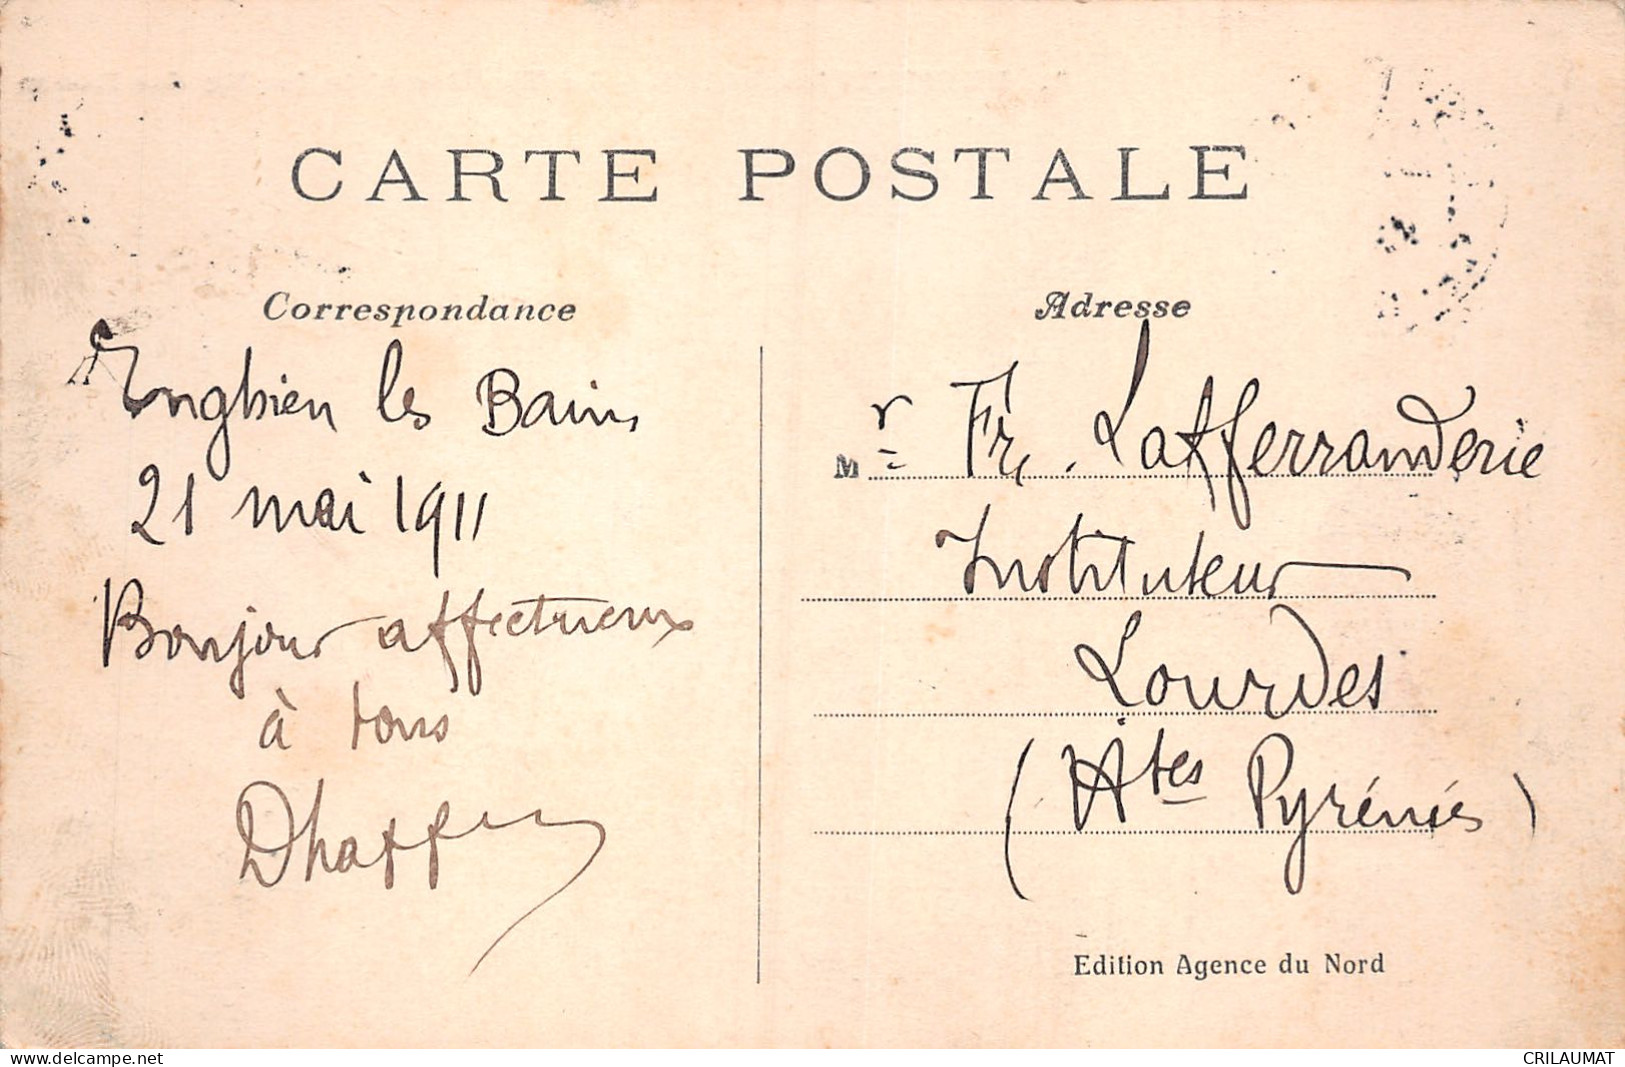 CARTE POSTALE
Correspondance
Enghien les Bains
21 mai 1911
Bonjour affectueux
à tous
Adresse
Mr Fr. Lafferranderie
Instituteur
Lourdes
(Htes Pyrénées)
Edition Agence du Nord
www.delcampe.net
CRILAUMAT